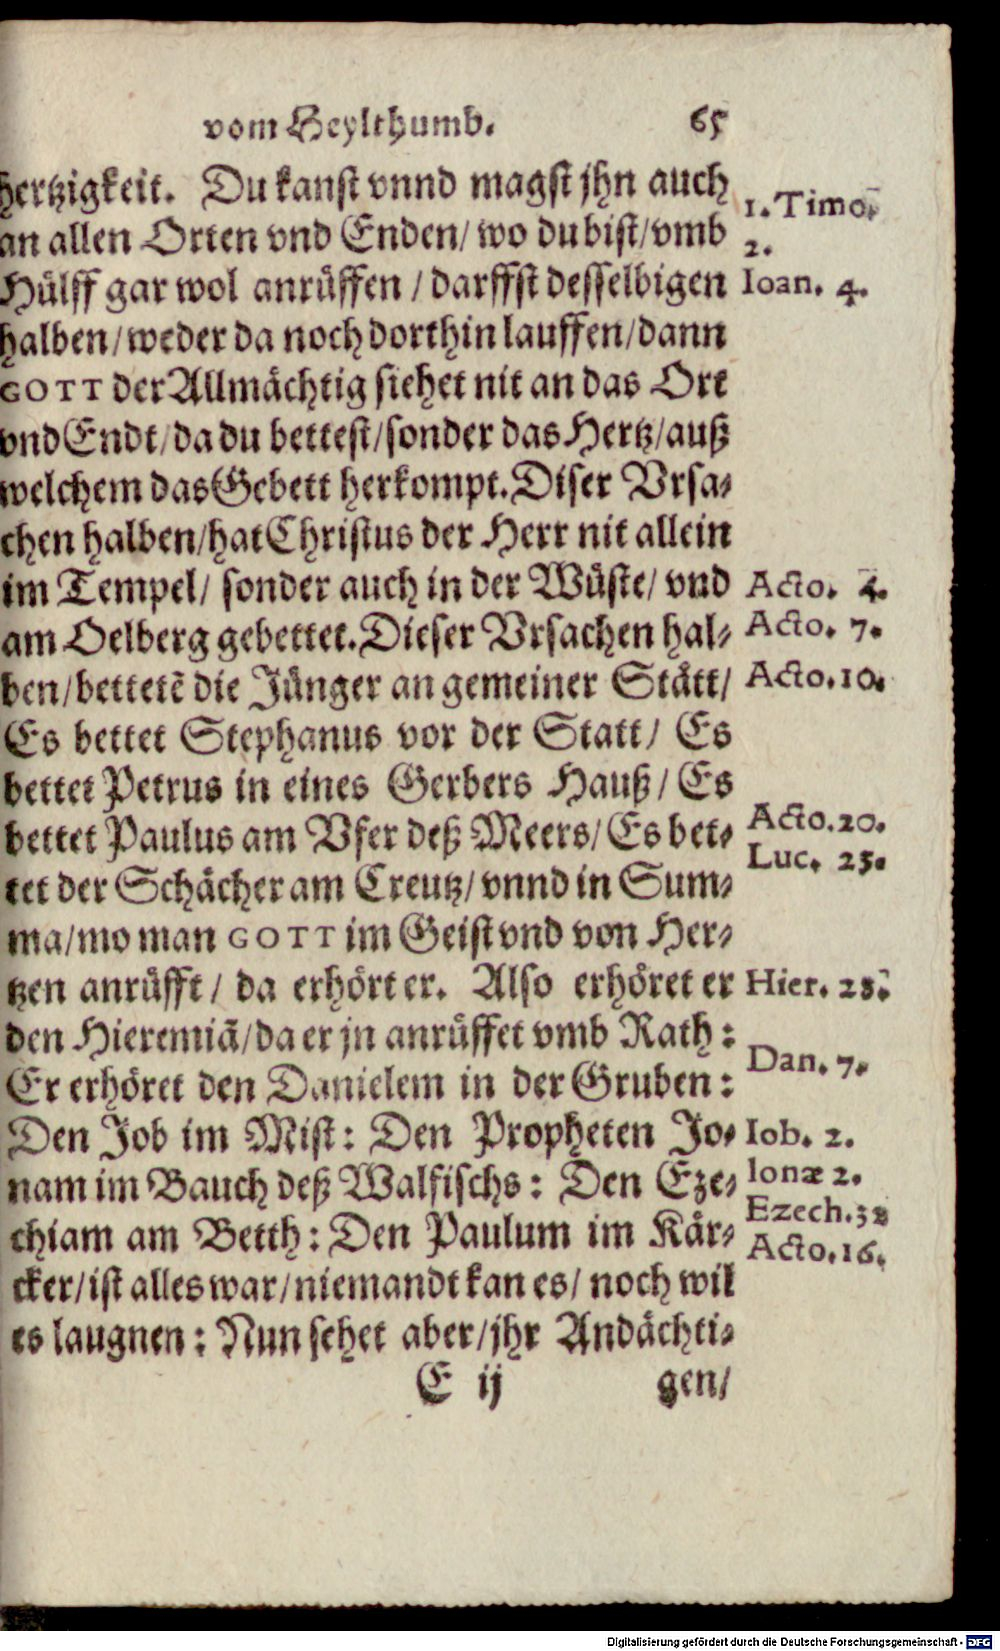 vom Heylthumb. 65
hertzigkeit. Du kanst vnnd magst jhn auch
an allen Orten vnd Enden/ wo du bist/ vmb
Hülff gar wol anrüffen / darffst desselbigen
halben/ weder da noch dorthin lauffen/ dann
GOTT der Allmächtig siehet nit an das Ort
vnd Endt/ da du bettest/ sonder das Hertz/ auß
welchem das Gebett herkompt. Diser Vrsa-
chen halben/ hat Christus der Herr nit allein
im Tempel/ sonder auch in der Wüste/ vnd
am Oelberg gebettet. Dieser Vrsachen hal-
ben/ bettetẽ die Jünger an gemeiner Stätt/
Es bettet Stephanus vor der Statt/ Es
bettet Petrus in eines Gerbers Hauß/ Es
bettet Paulus am Vfer deß Meers/ Es bet-
tet der Schächer am Creutz/ vnnd in Sum-
ma/ mo man GOTT im Geist vnd von Her-
tzen anrüfft/ da erhört er. Also erhöret er
den Hieremiã/ da er jn anrüffet vmb Rath:
Er erhöret den Danielem in der Gruben:
Den Job im Mist: Den Propheten Jo-
nam im Bauch deß Walfischs: Den Eze-
chiam am Betth: Den Paulum im Kär-
cker/ ist alles war/ niemandt kan es/ noch wil
es laugnen: Nun sehet aber/ jhr Andächti-
E ij gen/
1. Timo.
2.
Ioan. 4.
Acto. 4.
Acto. 7.
Acto. 10.
Acto. 20.
Luc. 23.
Hier. 23.
Dan. 7.
Iob. 2.
Ionæ 2.
Ezech. 38
Acto. 16.
Digitalisierung gefördert durch die Deutsche Forschungsgemeinschaft - DFG